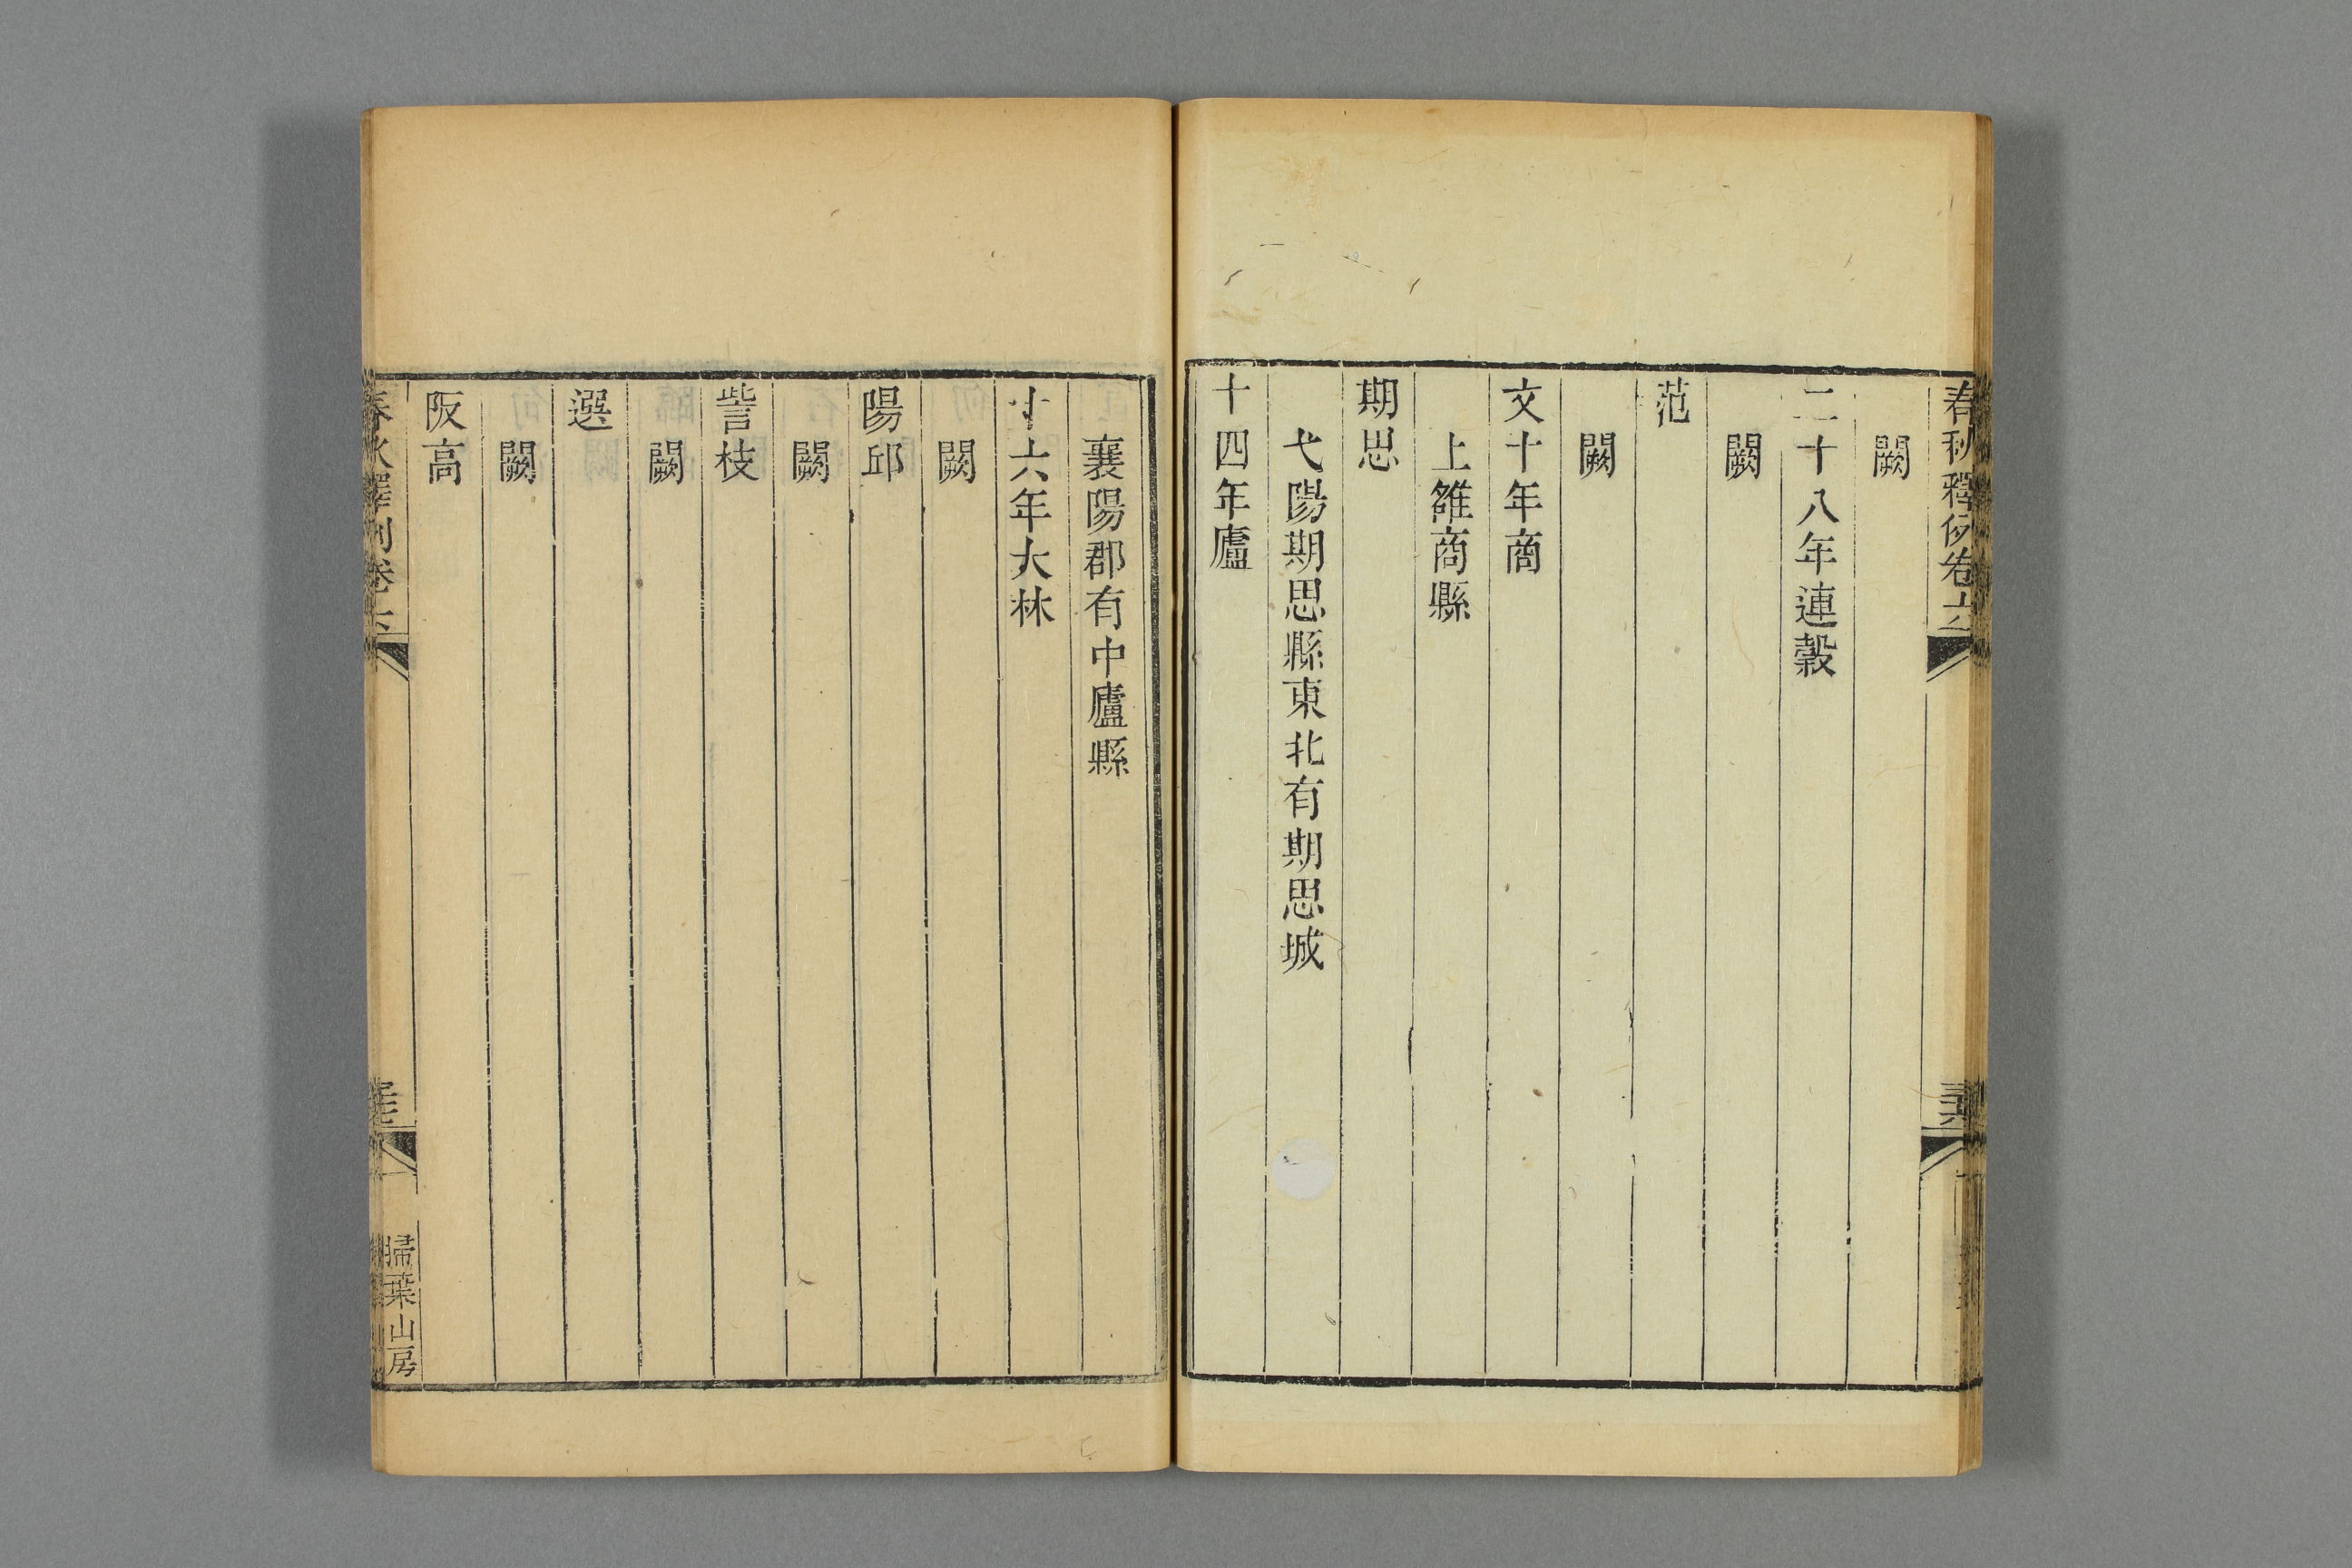 春秋釋例卷六
闕
二十八年連穀
闕
范
闕
文十年商
上雒商縣
期思
弋陽期思縣東北有期思城
十四年廬
襄陽郡有中廬縣
十六年大林
闕
陽邱
闕
訾枝
闕
選
闕
阪高
春秋釋例卷六
掃葉山房